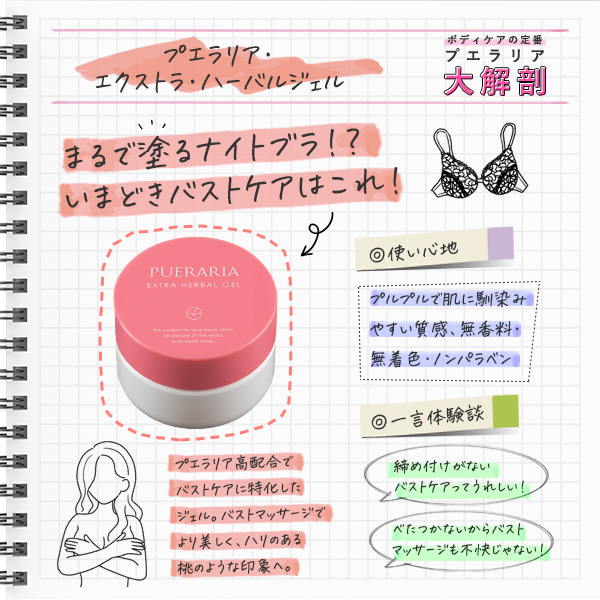 プエラリア・
エクストラ・ハーバルジェル
ボディケアの定番
プエラリア
大解剖
まるで塗るナイトブラ!?
いまどきバストケアはこれ!
PUERARIA
EXTRA HERBAL GEL
We support to love each other.
All people of the world
love each other.
◎使い心地
プルプルで肌に馴染み
やすい質感、無香料・
無着色・ノンパラベン
◎一言体験談
締め付けがない
バストケアってうれしい!
べたつかないからバスト
マッサージも不快じゃない!
プエラリア高配合で
バストケアに特化した
ジェル。バストマッサージで
より美しく、ハリのある
桃のような印象へ。